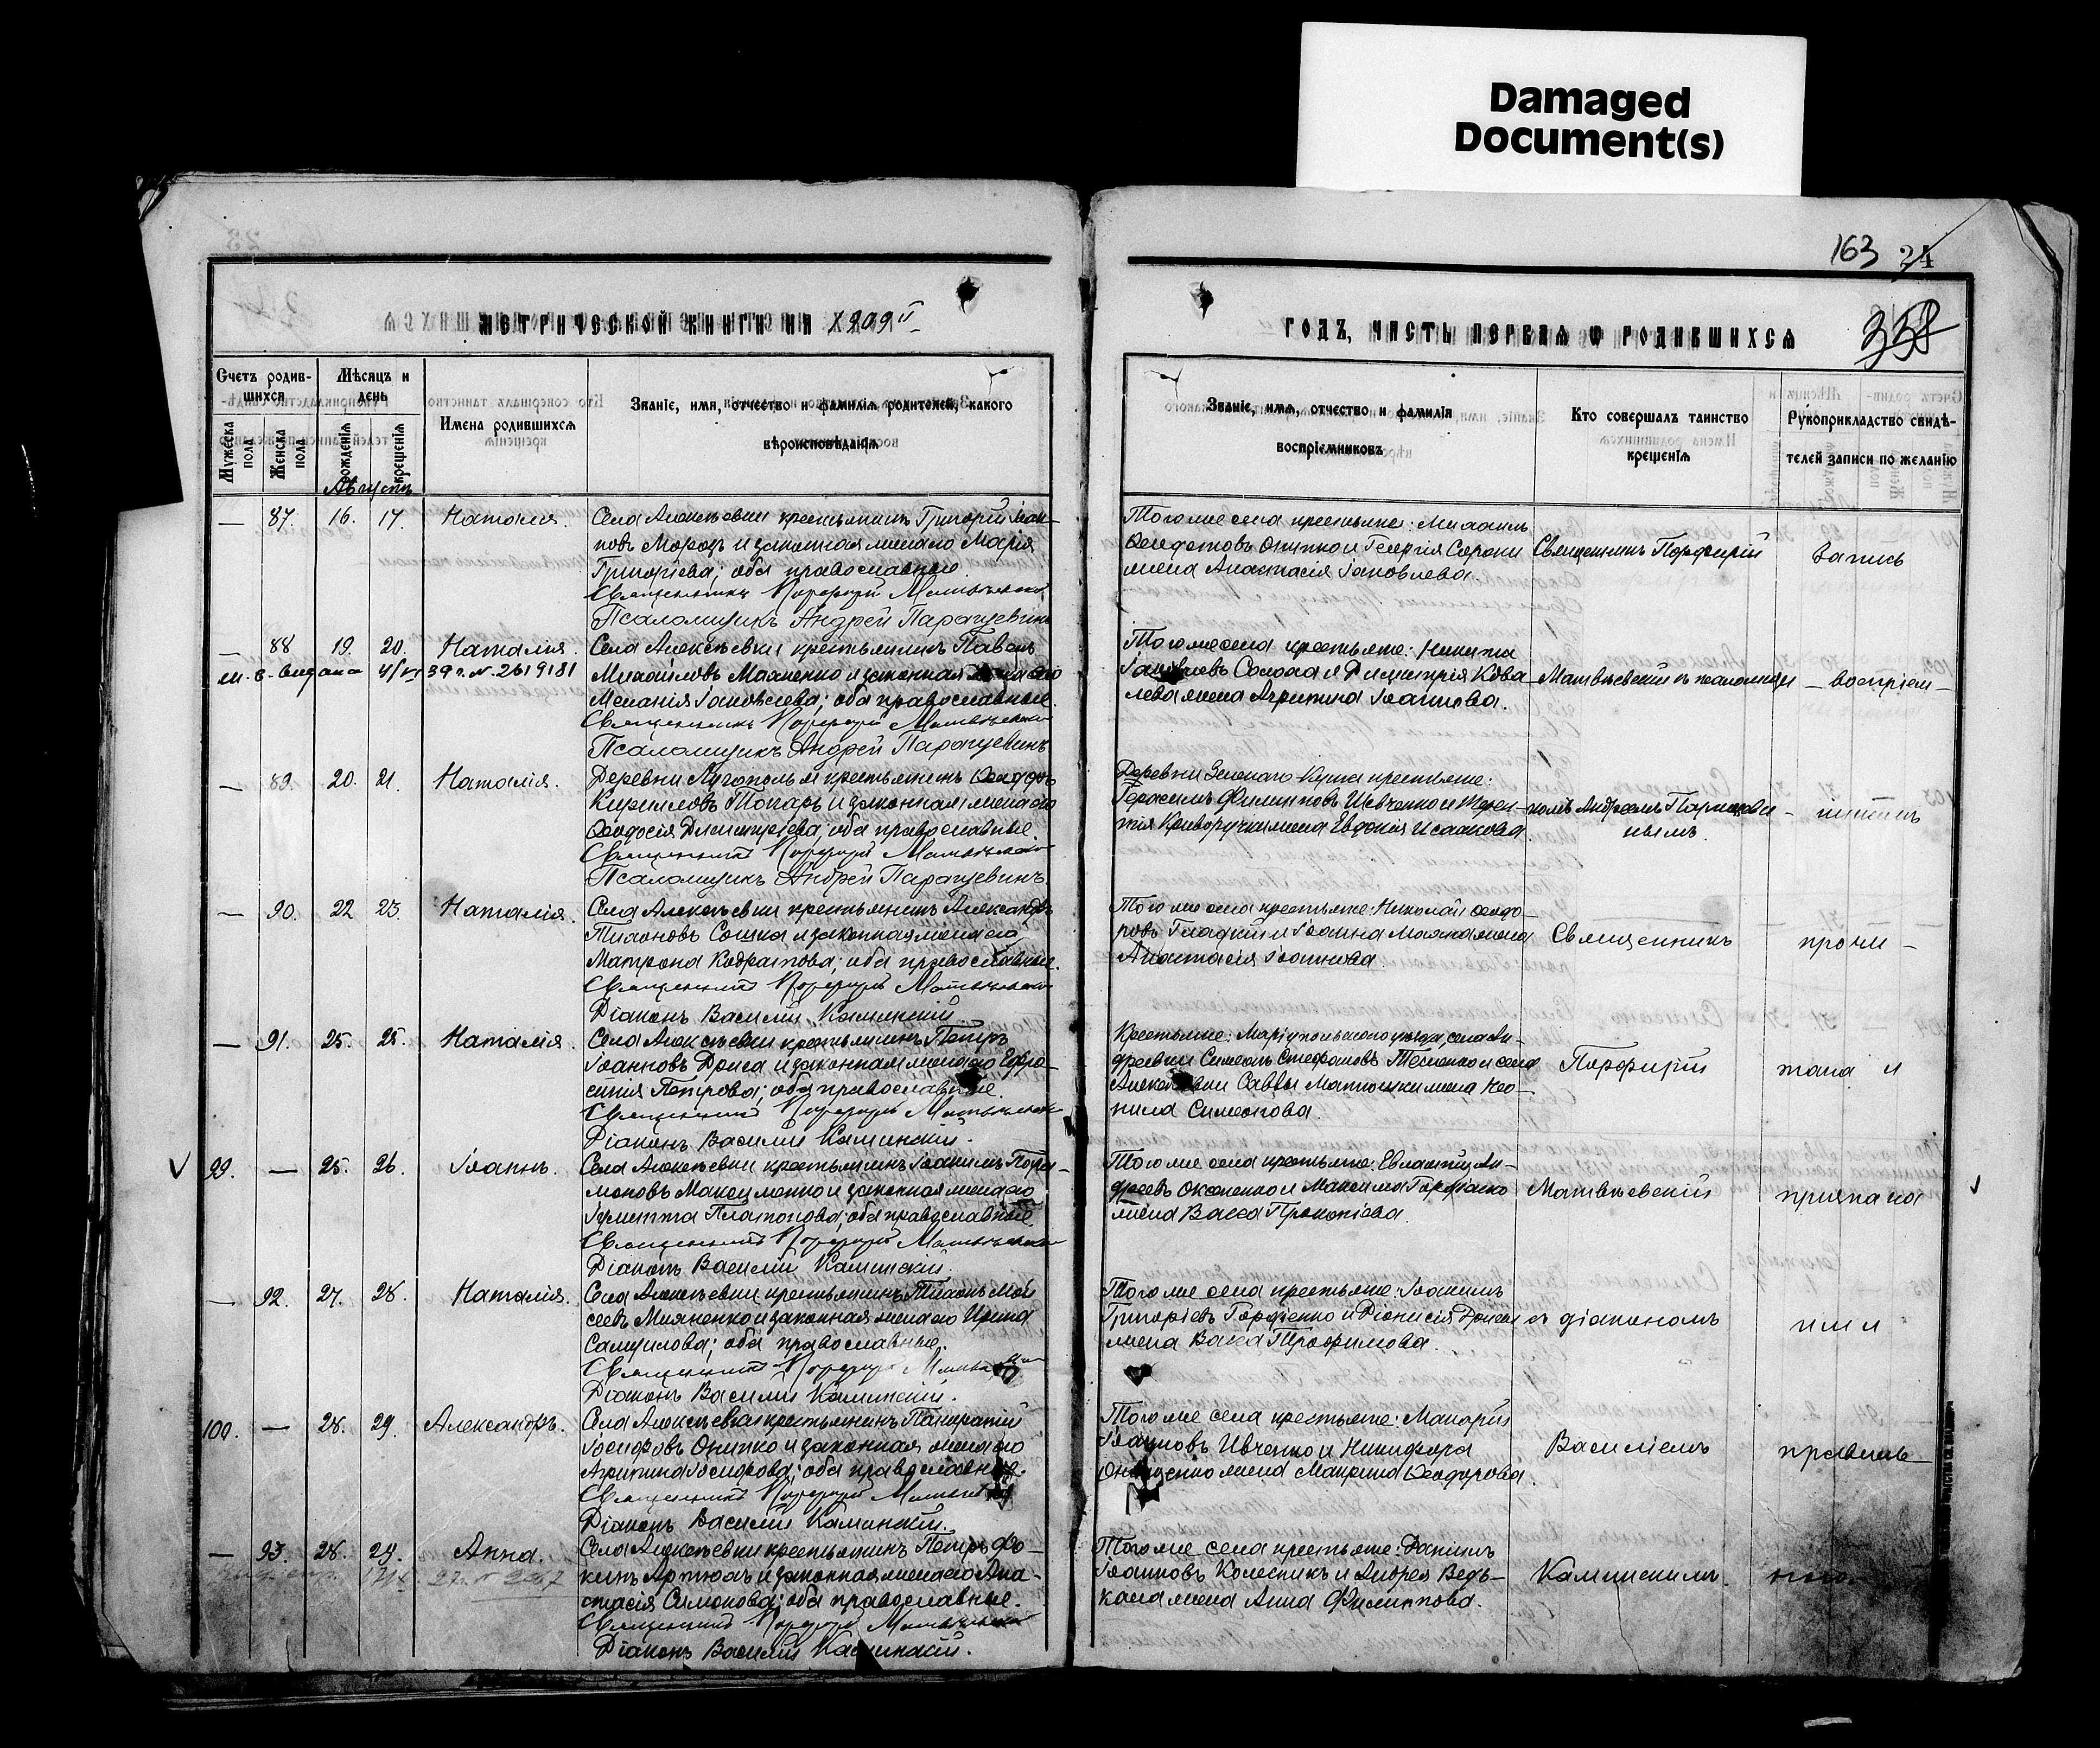 Damaged
Document(s)
163 24
338
МЕТРИЧЕСКОЙ КНИГИ НА 1909й
ГОДЪ, ЧАСТЬ ПЕРВАЯ О РОДИВШИХСЯ
Счетъ родив-
шихся
Мужеска пола
Женска пола
Мѣсяцъ и
день
рожденія
крещенія
Имена родившихся
Званіе, имя, отчество и фамилія родителей, какого
вѣроисповѣданія
Званіе, имя, отчество и фамилія
воспріемниковъ
Кто совершалъ таинство
крещенія
Рукоприкладство свидѣ-
телей записи по желанію
Августъ
— 87. 16. 17. Наталія.
Села Алексѣевки крестьянинъ Григорій Іоан-
новъ Морозъ и законная жена его Марія
Григоріева; оба православные.
Священникъ Порфирій Матвѣевскій
Псаломщикъ Андрей
Того же села крестьяне: Михаилъ
Ѳеодотовъ Онипко и Георгія Сороки
жена Анастасія Іаковлева.
Священникъ Порфирій
Запись
— 88 19. 20. Наталія.
39 г. № 2619181
Села Алексѣевки крестьянинъ Павелъ
Михайловъ Махненко и законная жена его
Меланія Іаковлева; оба православные.
Священникъ Порфирій Матвѣевскій
Псаломщикъ Андрей
Того же села крестьяне: Никита
Солоха и Димитрія Кова-
лева жена Агрипина Іоаннова.
Матвѣевскій съ псаломщи
— воспріем —
— 89. 20. 21. Наталія.
Деревни крестьянинъ Ѳеодоръ
Кирилловъ Токарь и законная жена его
Ѳеодосія Димитріева; оба православные.
Священникъ Порфирій Матвѣевскій
Псаломщикъ Андрей
Деревни Зеленаго крестьяне:
Герасимъ Филипповъ Шевченко и Терен-
тія Криворучки жена Евдокія Исаакова.
комъ Андреемъ
— 90. 22 23. Наталія.
Села Алексѣевки крестьянинъ Александръ
Тихоновъ Сошка и законная жена его
Матрона Кодратова; оба православные.
Священникъ Порфирій Матвѣевскій
Діаконъ Василій Каминскій.
Того же села крестьяне: Николай Ѳеодо-
ровъ Гладкій и Іоанна жена
Анастасія Іоаннова.
Священникъ
прочи —
— 91. 25. 25. Наталія.
Села Алексѣевки крестьянинъ Петръ
Іоанновъ Дрига и законная жена его Ефро-
синія Петрова; оба православные.
Священникъ Порфирій Матвѣевскій
Діаконъ Василій Каминскій.
Крестьяне: Маріупольскаго уѣзда, села Ан-
дреевки Симеонъ Стефановъ и села
Алексѣевки Саввы Матюшки жена Нео-
нила Симеонова.
Порфирій
тана и
99. — 25. 26. Іоаннъ.
Села Алексѣевки крестьянинъ Іоакимъ Пара-
моновъ Максименко и законная жена его
Іулитта Платонова; оба православные.
Священникъ Порфирій Матвѣевскій
Діаконъ Василій Каминскій.
Того же села крестьяне: Евлампій Ан-
дреевъ Оксененко и Максима Горфіенко
жена Васса Прокопіева.
Матвѣевскій
признана
— 92. 27. 28. Наталія.
Села Алексѣевки крестьянинъ Тихонъ Мой
сеевъ и законная жена его Ирина
Самуилова; оба православные.
Священникъ Порфирій
Діаконъ Василій Каминскій.
Того же села крестьяне: Іоакимъ
Григоріевъ Горфіенко и Діонисія Дриги
жена Васса Трофимова.
съ діакономъ
ими
100. — 28. 29. Александръ.
Села Алексѣевки крестьянинъ Панкратій
Іосифовъ Онипко и законная жена его
Агрипина Іосифова; оба православные.
Священникъ Порфирій
Діаконъ Василій Каминскій.
Того же села крестьяне: Макарій
Іоанновъ Ивченко и Никифора
Онищенко жена Макрина Ѳеодорова.
Василіемъ
правиль —
— 93. 28. 29. Анна.
27 г. №
Села Алексѣевки крестьянинъ Петръ Фо-
кинъ Артюхъ и законная жена его Ана-
стасія Симонова; оба православные.
Священникъ Порфирій Матвѣевскій
Діаконъ Василій Каминскій.
Того же села крестьяне: Даніилъ
Іоанновъ Колесникъ и Андрея Ведь-
кала жена Анна Филиппова.
Каминскимъ.